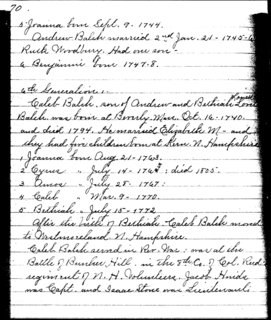 70.
5 Joanna born Sept. 9 - 1744.
Andrew Balch married 2nd Jan. 21 - 1745-6
Ruth Woodbury. Had one son -
6 Benjamin born 1747-8.
6th Generation:
Caleb Balch, son of Andrew and Bethiah
Balch was born at Beverly Mass. Oct. 16 - 1740.
and died 1794. He married Elizabeth M - and
they had five children born at Keene N. Hampshire
1 Joanna born Aug 21 - 1763.
2 Cyrus " July 14 - 1765; died 1805.
3 Amos " July 25 - 1767:
4 Caleb " Mar. 9 - 1770.
5 Bethiah " July 15 - 1772
After the birth of Bethiah - Caleb Balch moved
to Westmoreland N. Hampshire.
Caleb Balch served in Rev. War: was at the
Battle of Bunker Hill: in the 8th Co. of Col. Reid
regiment of N. H. Volunteers. Jacob Hinds
was Capt. and Isaac Stone was Lieutenant.